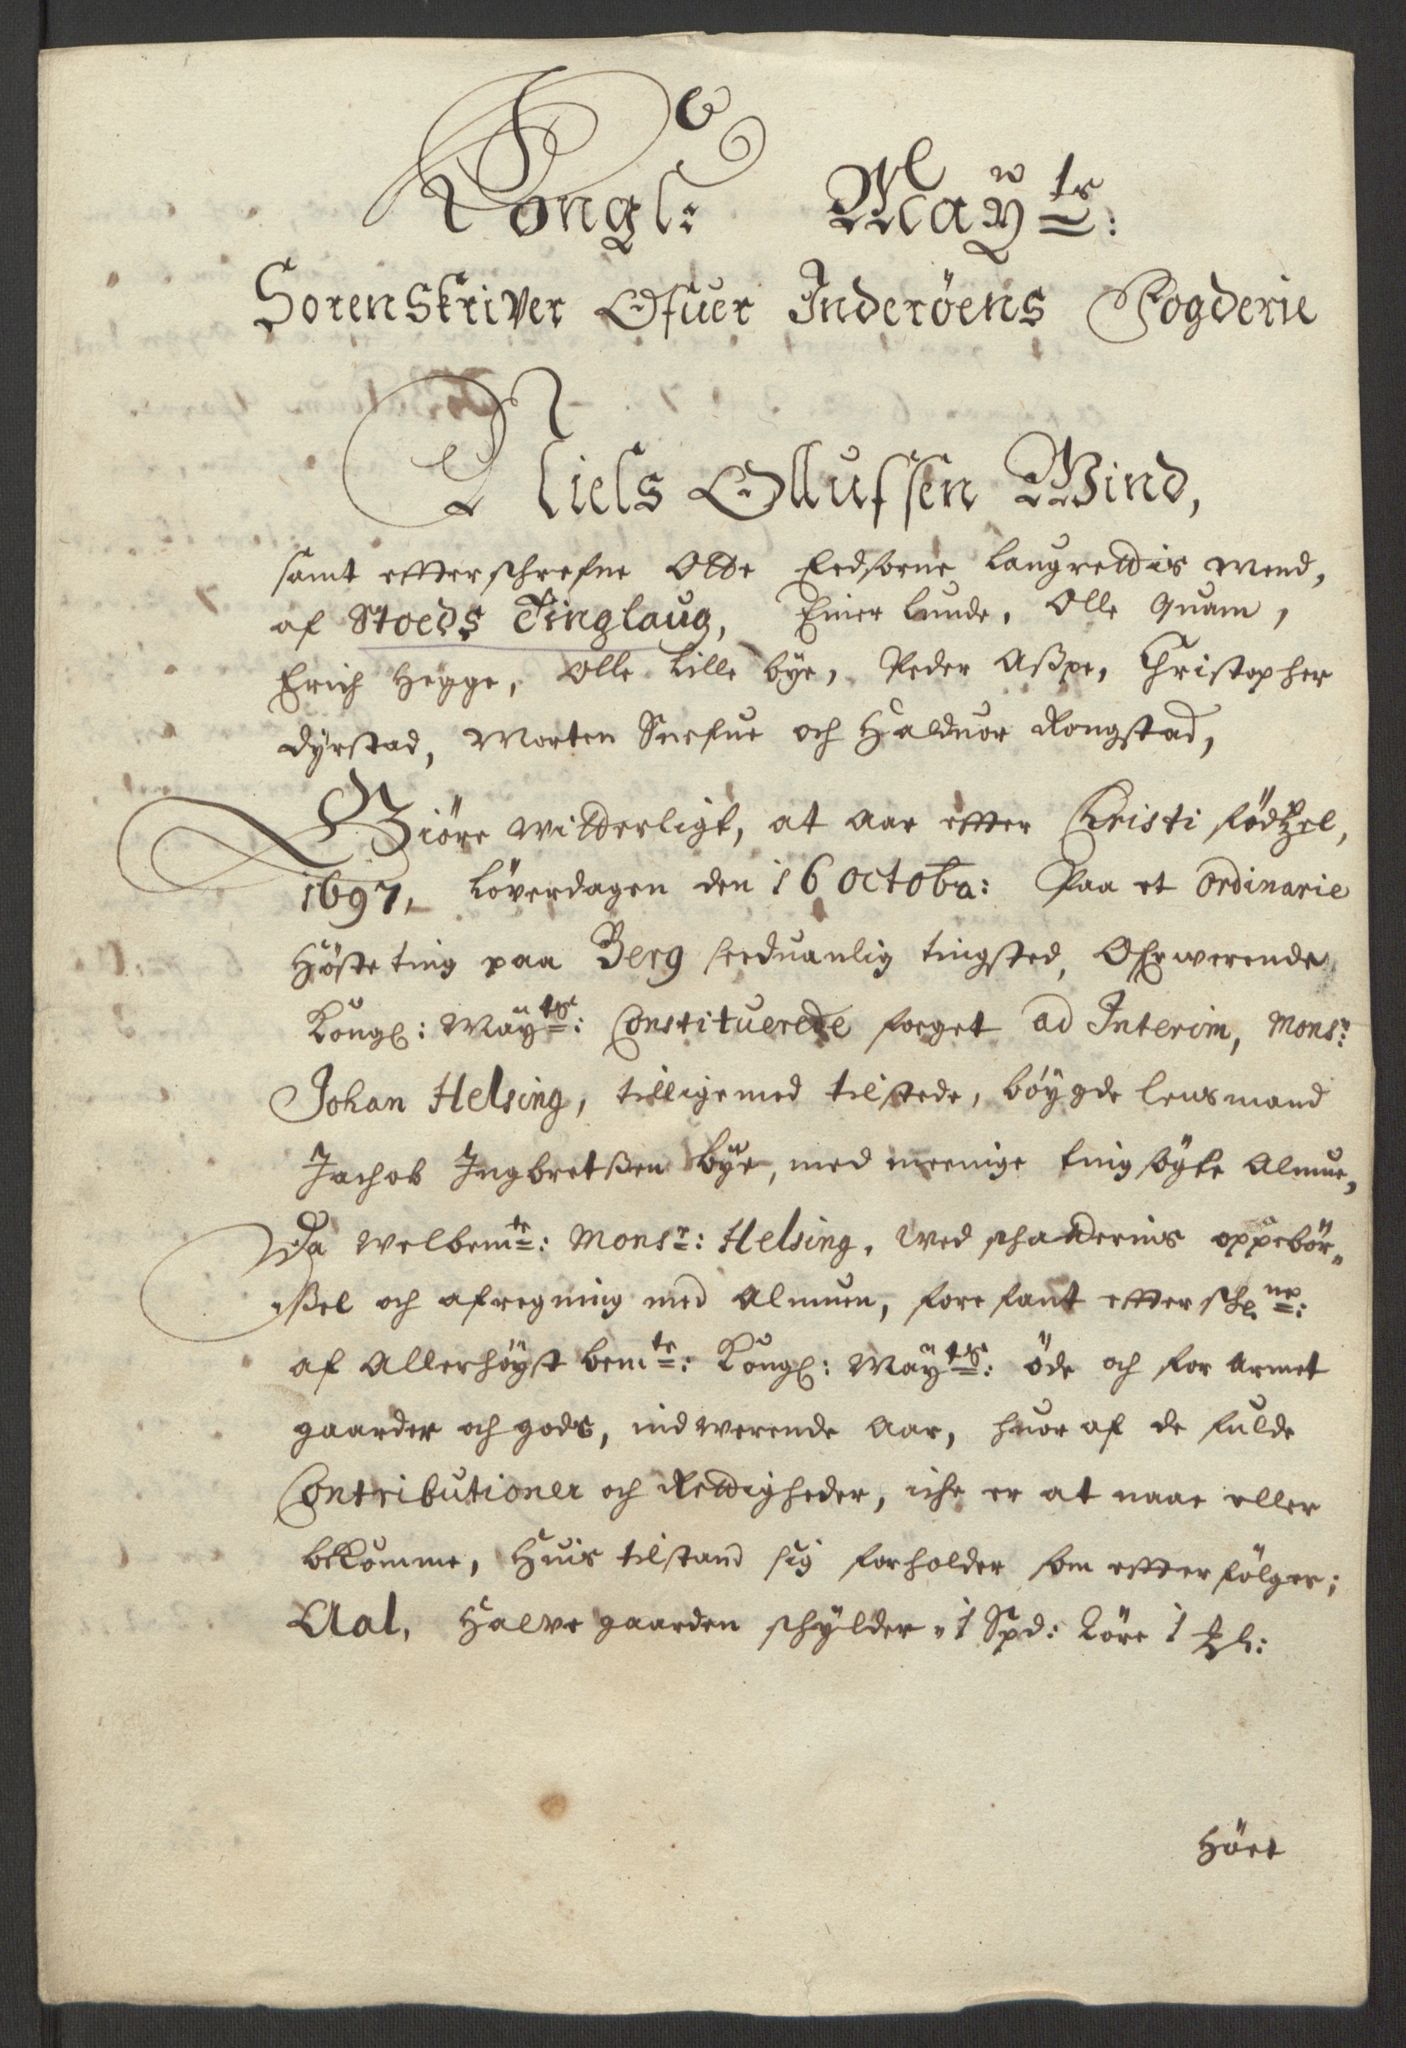 Kongl: Maÿts:
Sorenskriver Ofuer Inderöens Fogderie
Niels Ollufsen Wind,
samt effterschrefne Otte Eedsorne Laugrettis mend,
af Stoeds Tinglaug, Einer Lunde, Olle Quam,
Erich Hegge, Olle Lille bye, Peder Aßpe, Christopher
Dyrstad, Morten Snefue och Halduor Rongstad,
Giöre witterligt, at Aar effter Christi födtzel,
1697, Löverdagen den 16 Octobr: Paa et ordinarie
Höste ting paa Berg sedvanlig tingsted, Ofrwerende
Kongl: Maÿts: Constituerede foeget ad Interim, Monsr:
Johan Helsing, tilligemed tilstede, böygde lensmand
Jachob Ingbretßen bÿe, med meenige tingsögte Almue,
Da welbemte: Monsr: Helsing, wed schatternis oppebör„
„ßel och afregning med Almuen, forefant effterschne:
af Allerhöyst bemte: Kongl: Maÿts: öde och for armet
gaarder och gods, indwerende Aar, huor af de fulde
Contributioner och Rettigheder, iche er at naae eller
bekomme, Huis tilstand sig forholder som effterfölger;
Aal, Halve gaarden schylder „1 Spd: Köre 1 tzl:
Hört